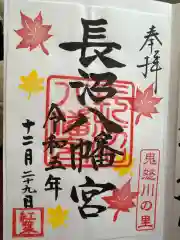 奉拝
長沼八幡宮
令和五年
十二月二九日
鬼怒川の里